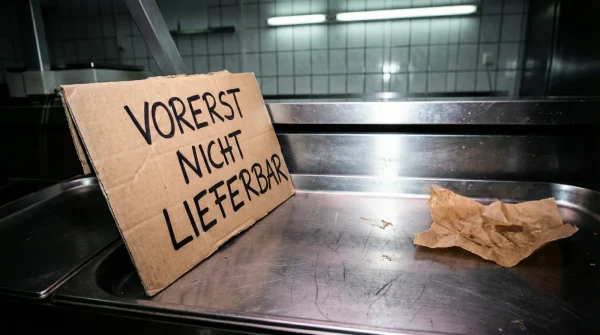 VORERST
NICHT
LIEFERBAR